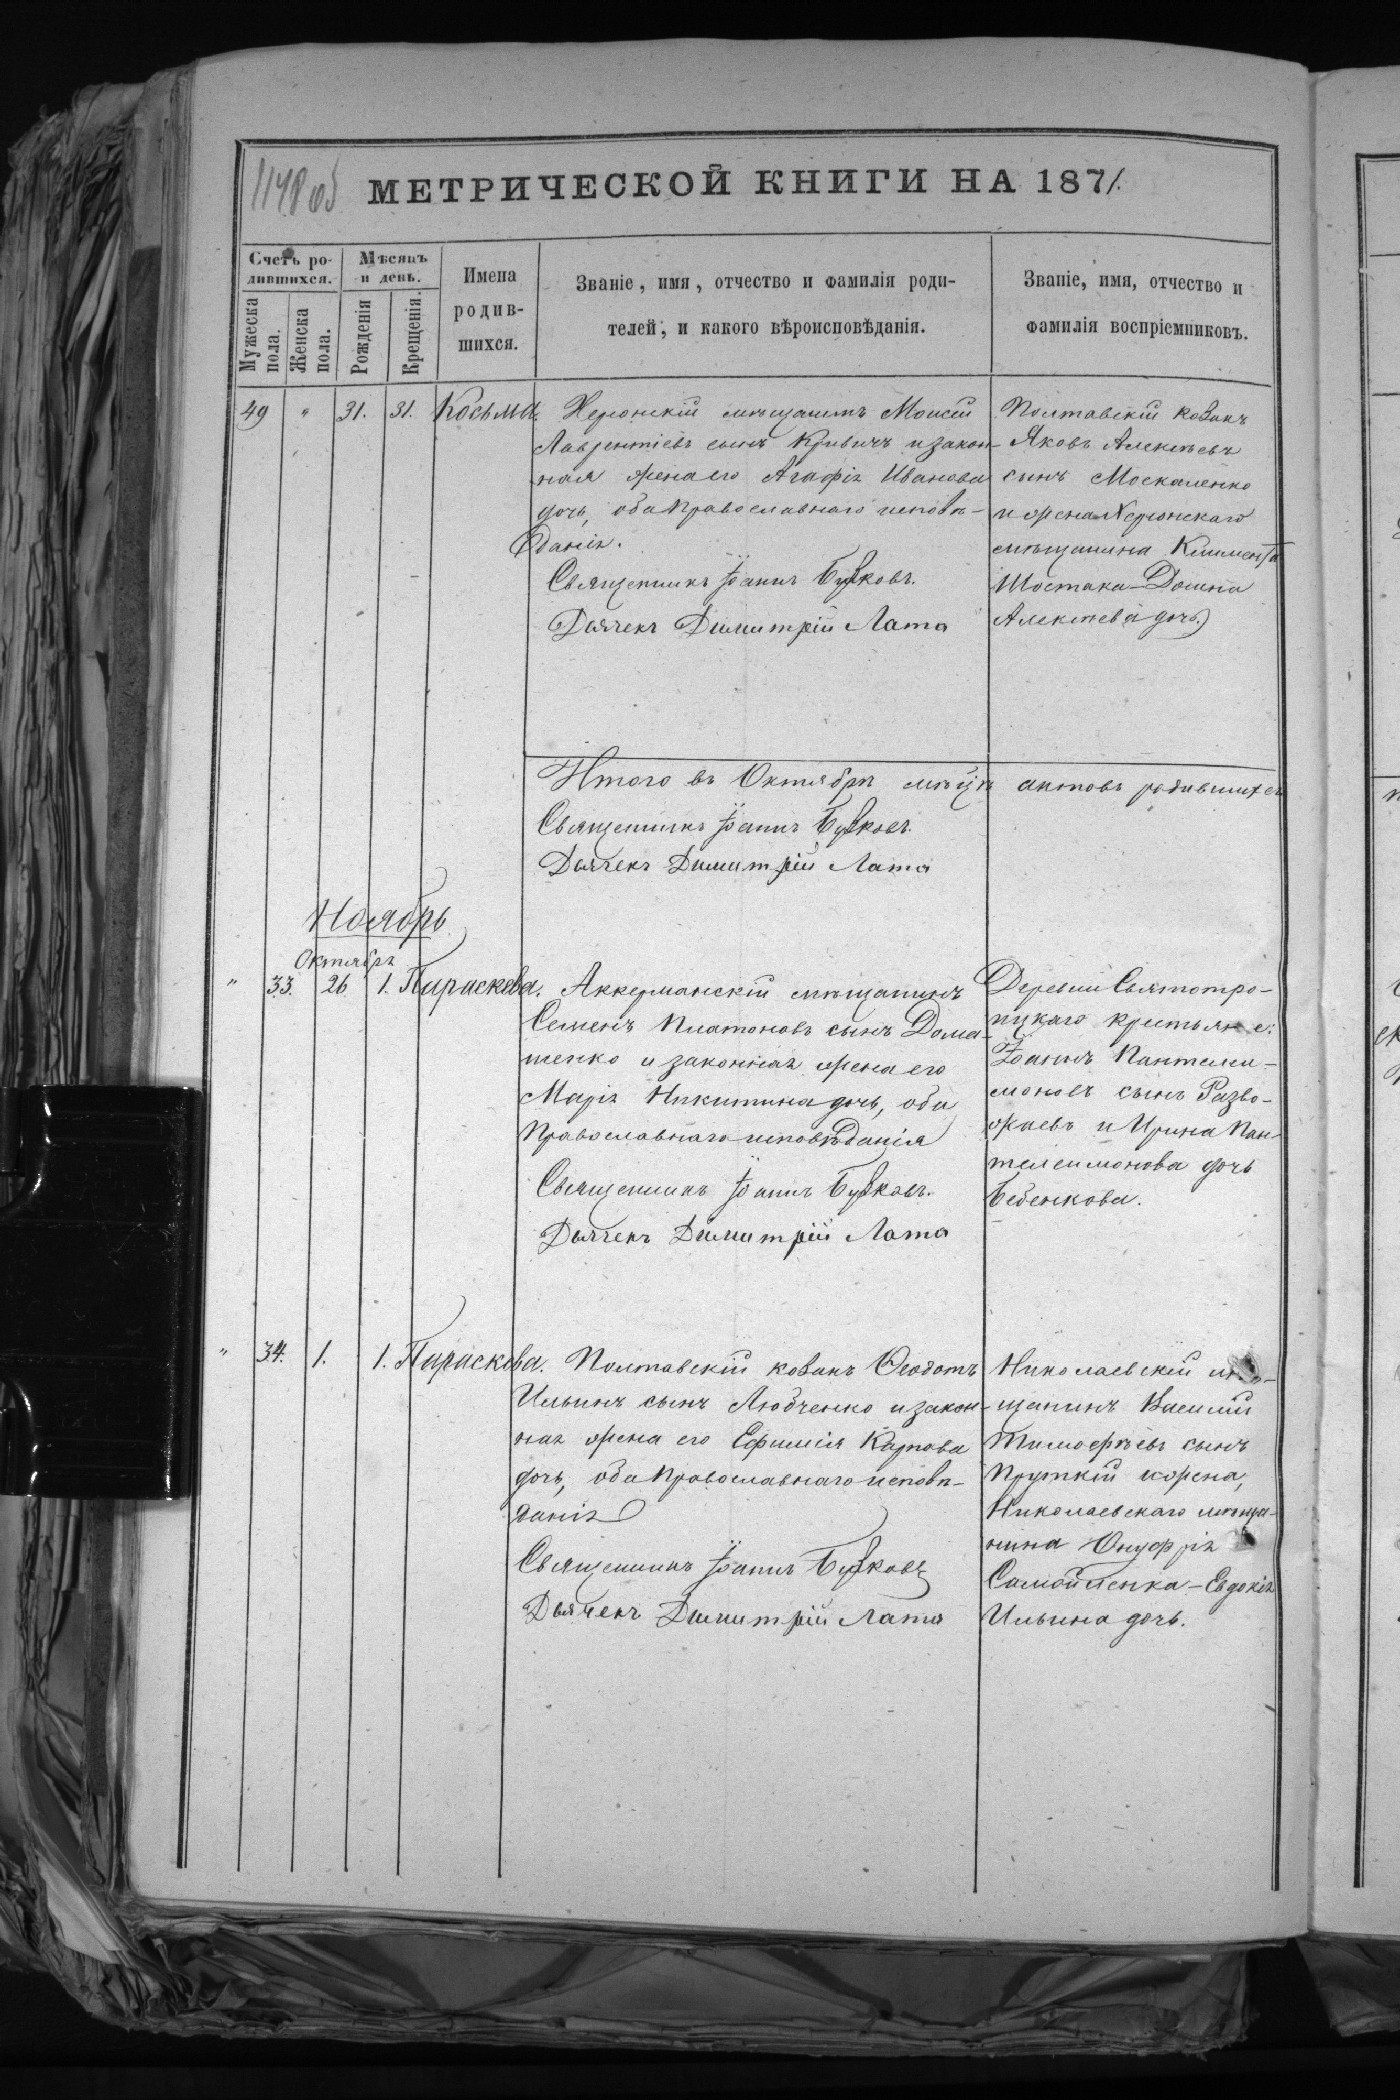 1148 об
МЕТРИЧЕСКОЙ КНИГИ НА 1871.
Счетъ ро-
дившихся.
Мѣсяцъ
и день.
Мужеска
пола.
Женска
пола.
Рожденія
Крещенія.
Имена
родив-
шихся.
Званіе, имя, отчество и фамилія роди-
телей, и какого вѣроисповѣданія.
Званіе, имя, отчество и
фамилія воспріемниковъ.
49 " 31. 31. Косьма.
Херсонскій мѣщанинъ Моисій
Лаврентіевъ сынъ Кривичъ и закон-
ная жена его Агафія Иванова
дочь, оба православнаго исповѣ-
данія.
Священникъ Іоаннъ Бужковъ.
Дьячекъ Димитрій Лата
Полтавскій козакъ
Яковъ Алексѣевъ
сынъ Москаленко
и жена Херсонскаго
мѣщанина Климента
Шостака - Домна
Алексѣева дочь.
Итого въ Октябрѣ мѣсцѣ актовъ родившихся
Священникъ Іоаннъ Бужковъ.
Дьячекъ Димитрій Лата
Ноябрь
Октября
" 33. 26 1. Параскева.
Аккерманскій мѣщанинъ
Семенъ Платоновъ сынъ Дома-
шенко и законная жена его
Марія Никитина дочь, оба
православнаго исповѣданія
Священникъ Іоаннъ Бужковъ.
Дьячекъ Димитрій Лата
Деревни Святотро-
ицкаго крестьяне:
Іоаннъ Пантелеи-
моновъ сынъ Разво-
жаевъ и Ирина Пан-
телеимонова дочь
Бебенкова.
" 34. 1. 1. Параскева.
Полтавскій козакъ Ѳеодотъ
Ильинъ сынъ Любченко и закон-
ная жена его Ефимія Карпова
дочь, оба православнаго исповѣ-
данія
Священникъ Іоаннъ Бужковъ
Дьячекъ Димитрій Лата
Николаевскій мѣ-
щанинъ Василій
Тимофѣевъ сынъ
Пруткій и жена,
Николаевскаго мѣща-
нина Онуфрія
Самойленка - Евдокія
Ильина дочь.